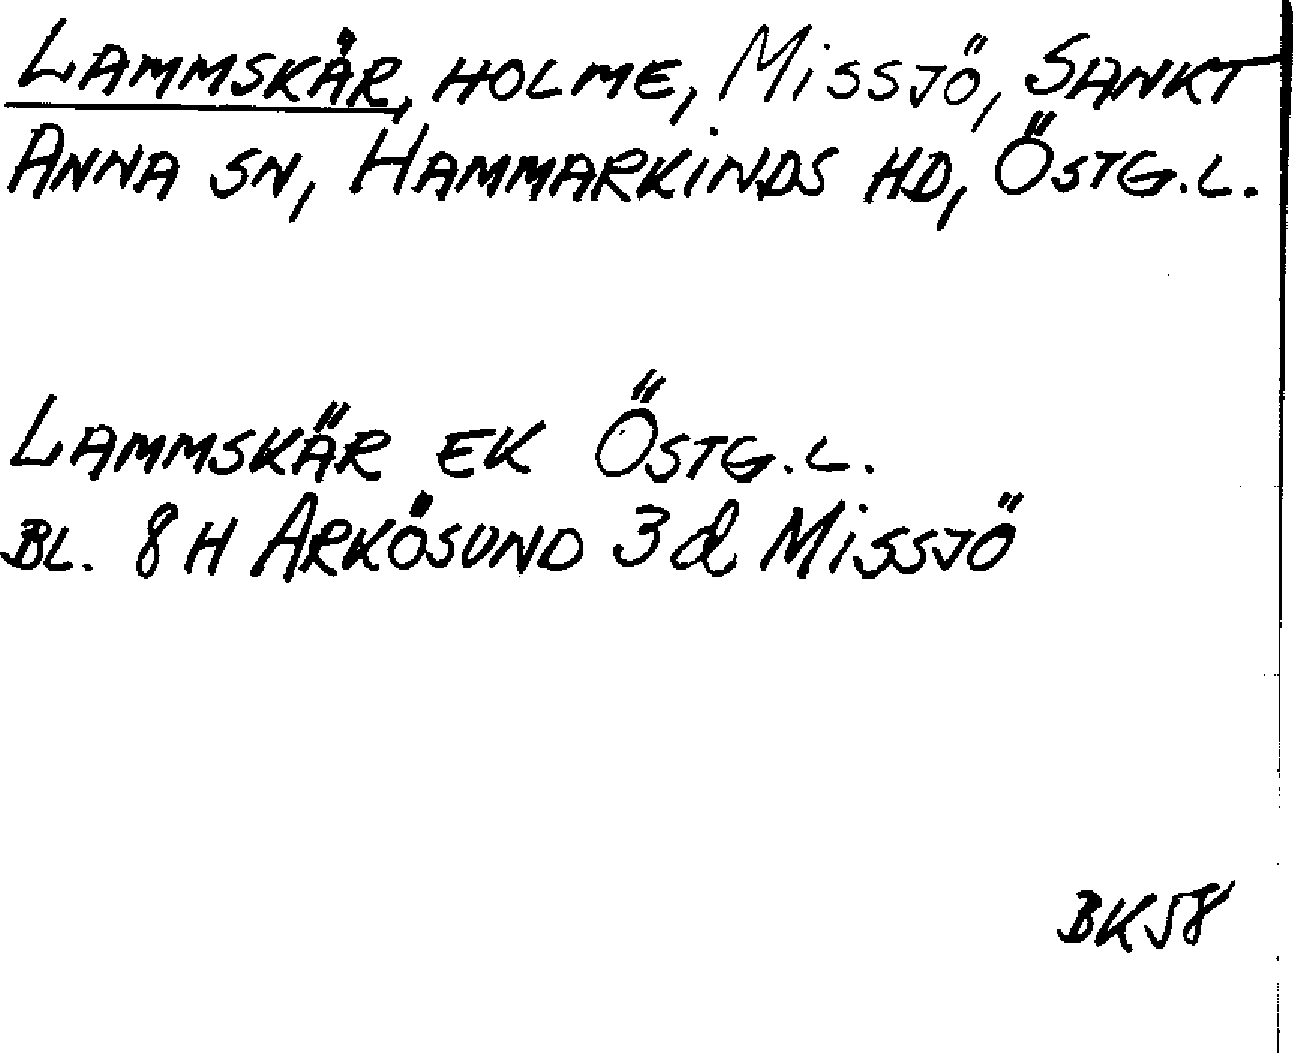 LAMMSKÄR, HOLME, MISSJÖ, SANKT
ANNA SN, HAMMARKINDS HD, ÖSTG.L.
LAMMSKÄR EK ÖSTG.L.
BL. 8H ARKÖSUND 3d MISSJÖ
BK58